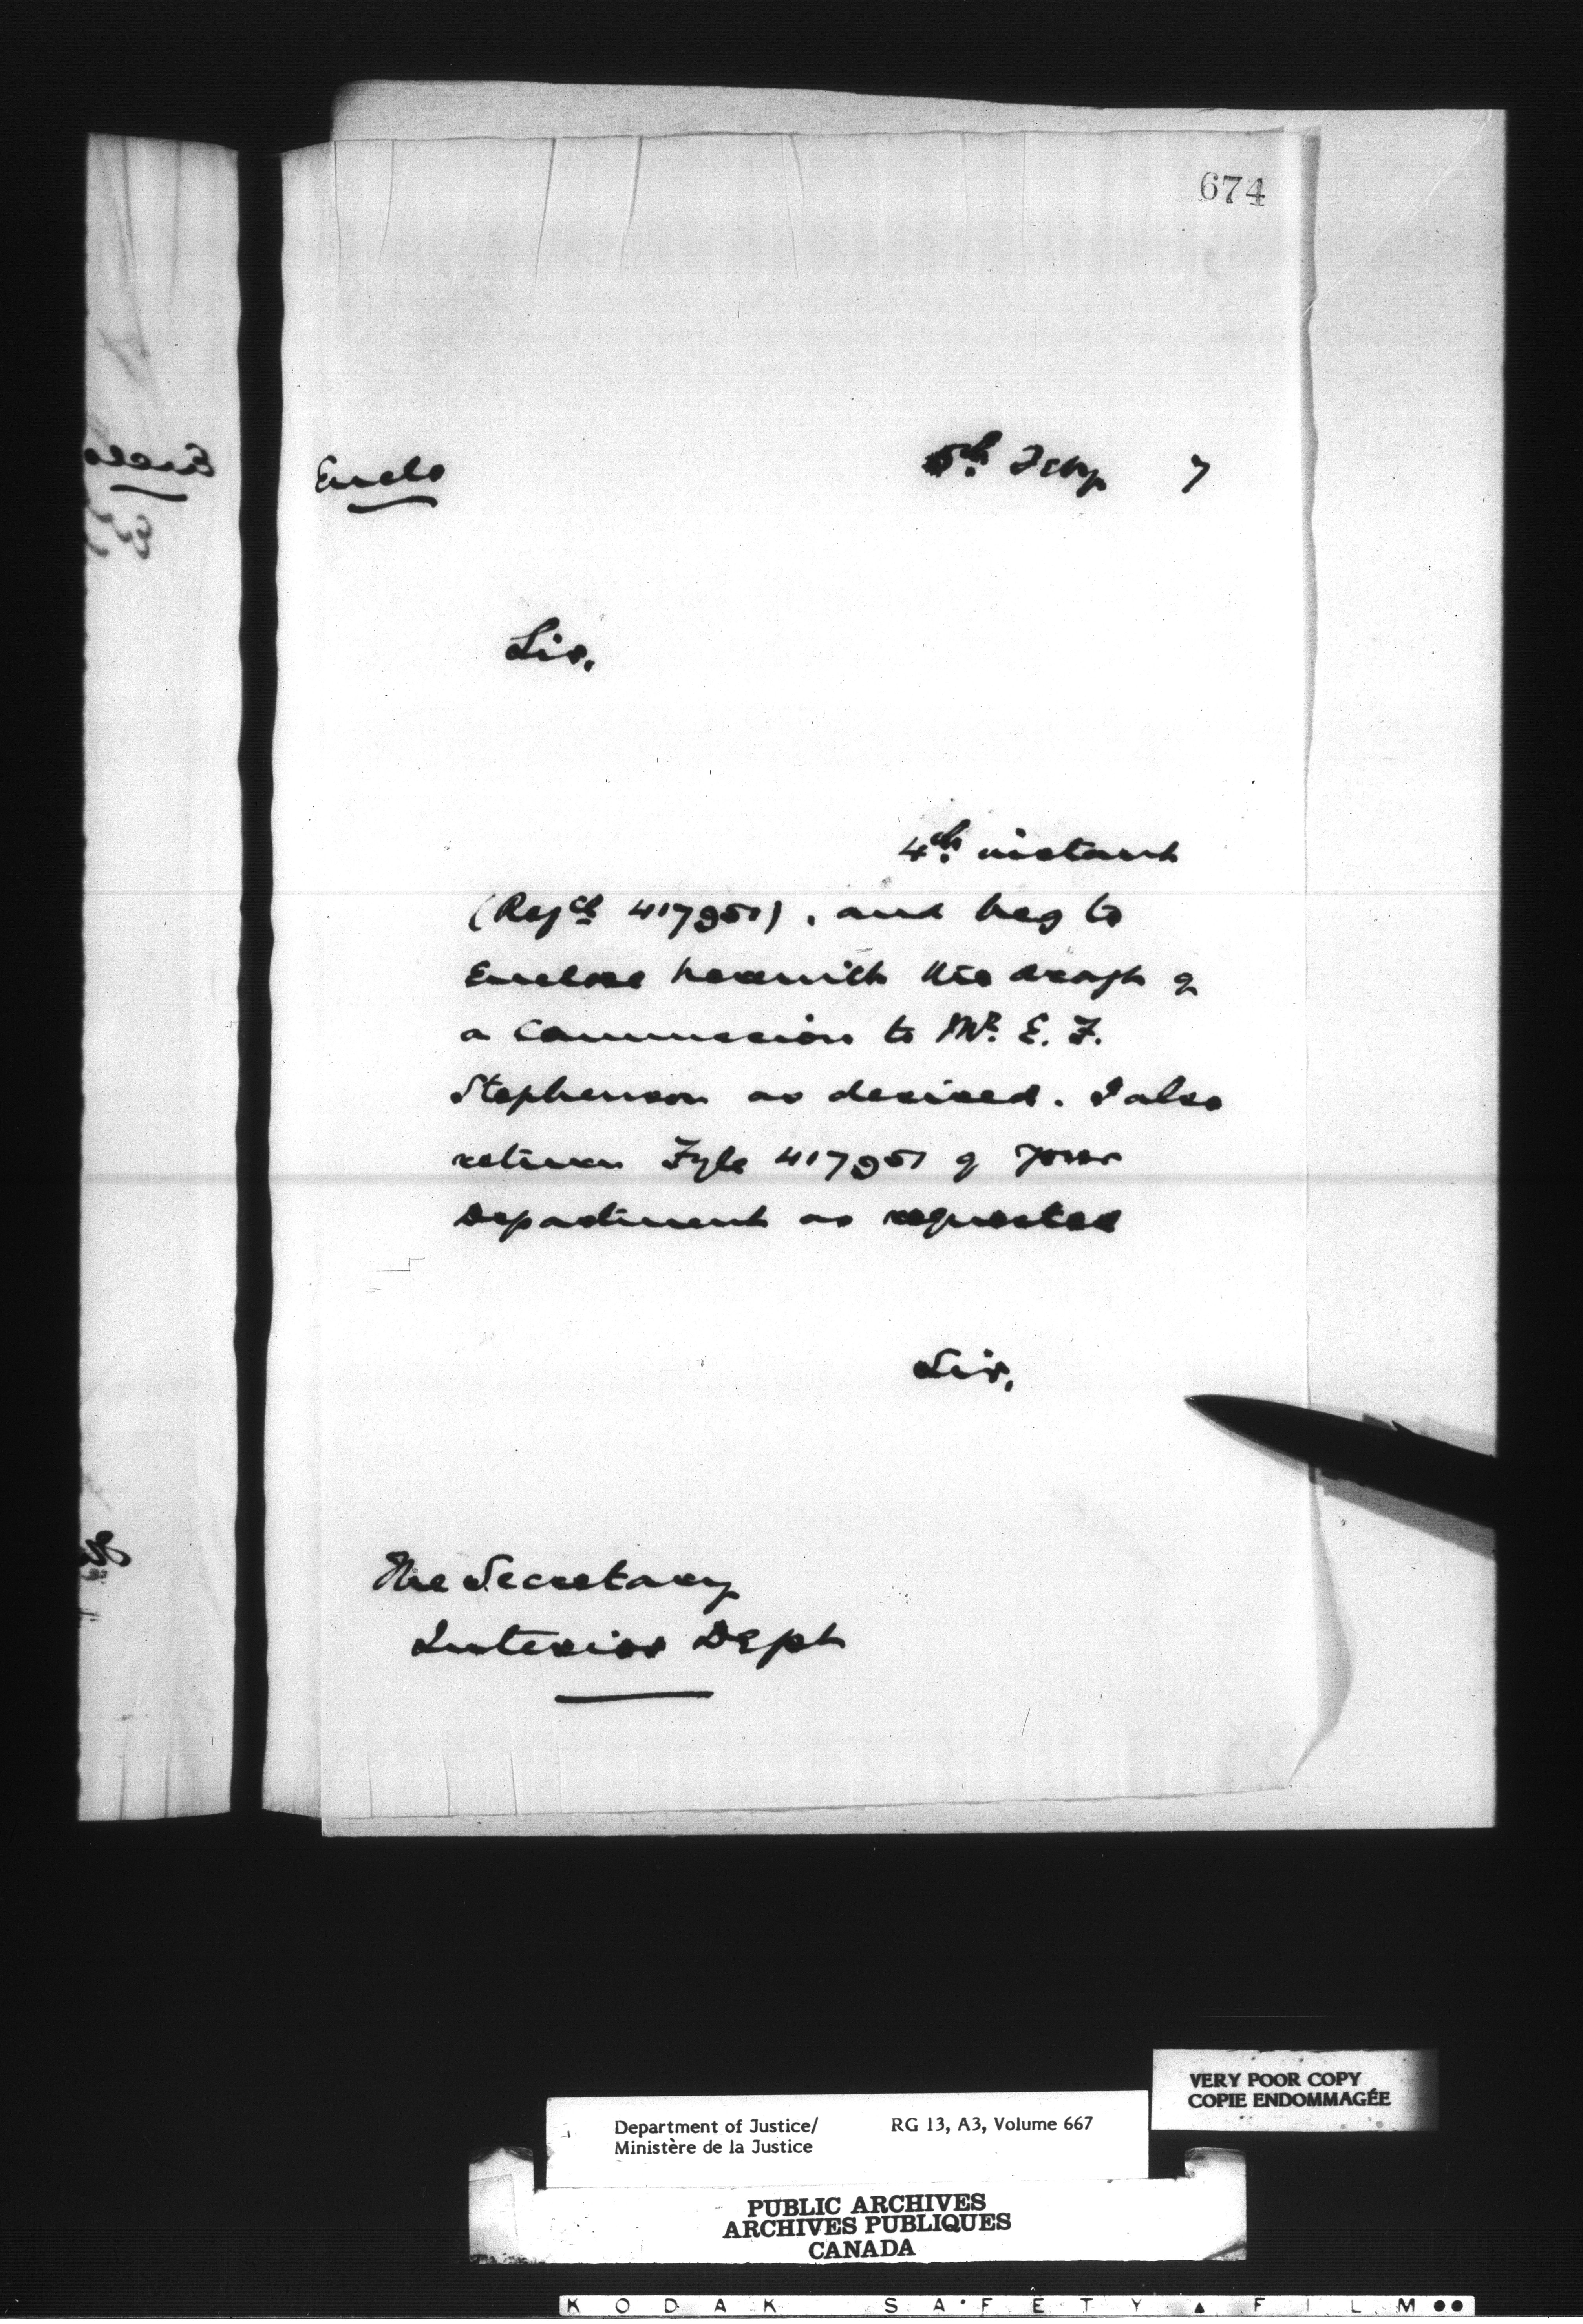 674
Enclo
5th. Feby 7
Sir,
4th. instant
(Refce 417951), and beg to
Enclose herewith the draft of
a Commission to Mr. E. F.
Stephenson as desired. I also
return Fyle 417951 of your
Department as requested
Sir,
The Secretary
Interior Dept
VERY POOR COPY
COPIE ENDOMMAGÉE
Department of Justice/ RG 13, A3, Volume 667
Ministère de la Justice
PUBLIC ARCHIVES
ARCHIVES PUBLIQUES
CANADA
KODAK SAFETY FILM